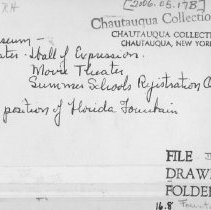 [2006.05.178]
Chautauqua Collectio
CHAUTAUQUA COLLECTI
CHAUTAUQUA, NEW YOR
seum -
ter - Hall of Expression.
Movie Theater
Summer Schools Registration
position of Florida Fountain
FILE
DRAWE
FOLDER
16.8 Fount